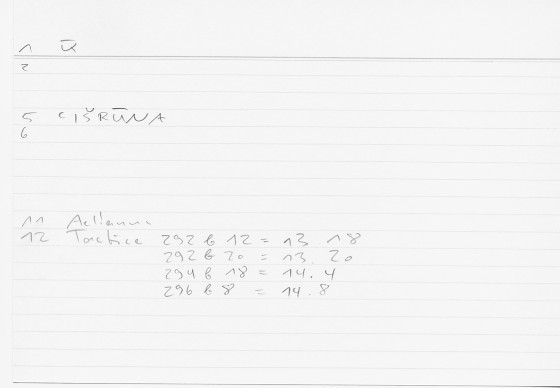 1 Ū
2
5 CIŠRŪNA
6
11 Aelianus
12 Tactica 292 b 12 = 13 18
292 b 20 = 13. 20
294 b 18 = 14. 4
296 b 8 = 14. 8